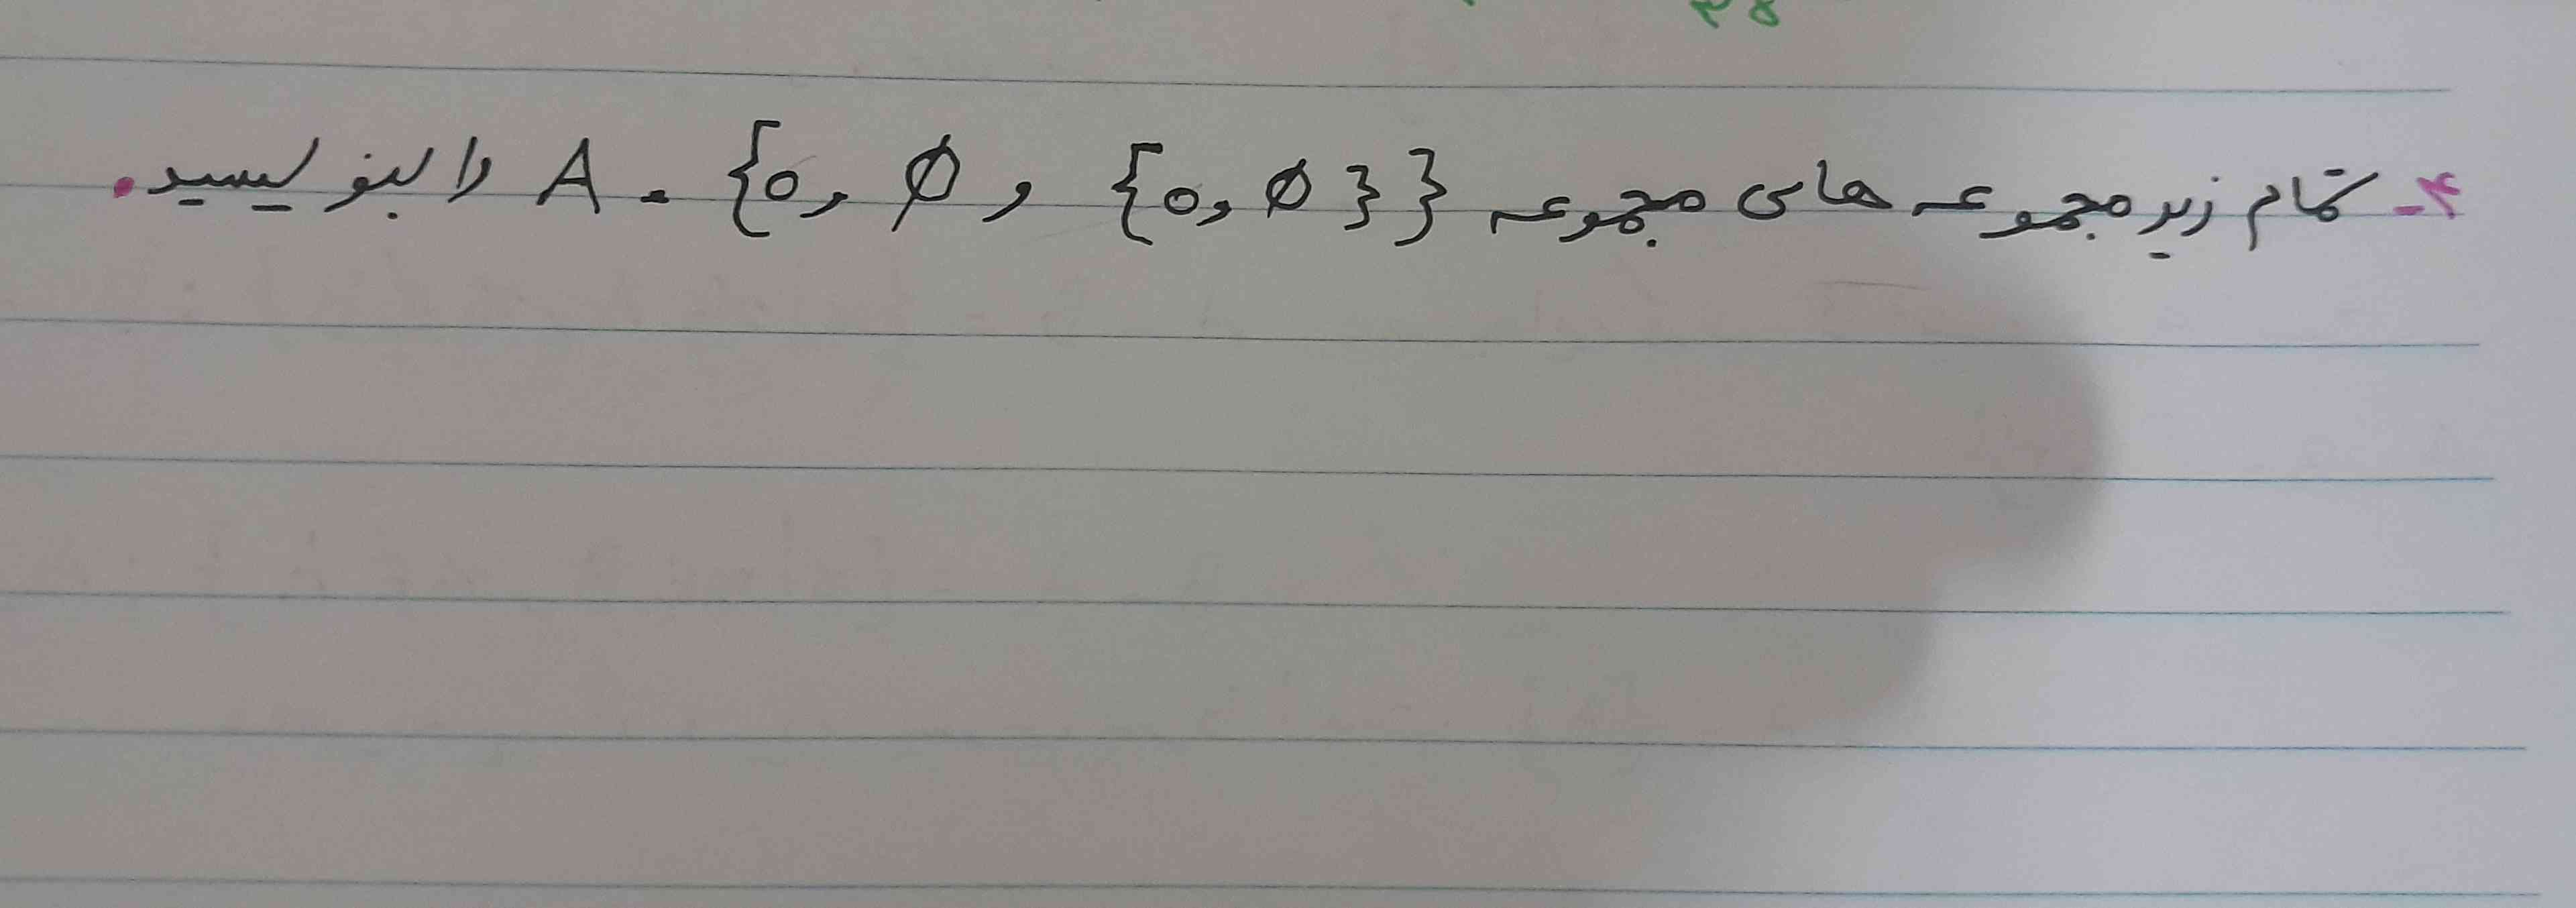 ۴- تمام زیر مجموعه های مجموعه A = {0, ∅, {0, ∅}} را بنویسید.